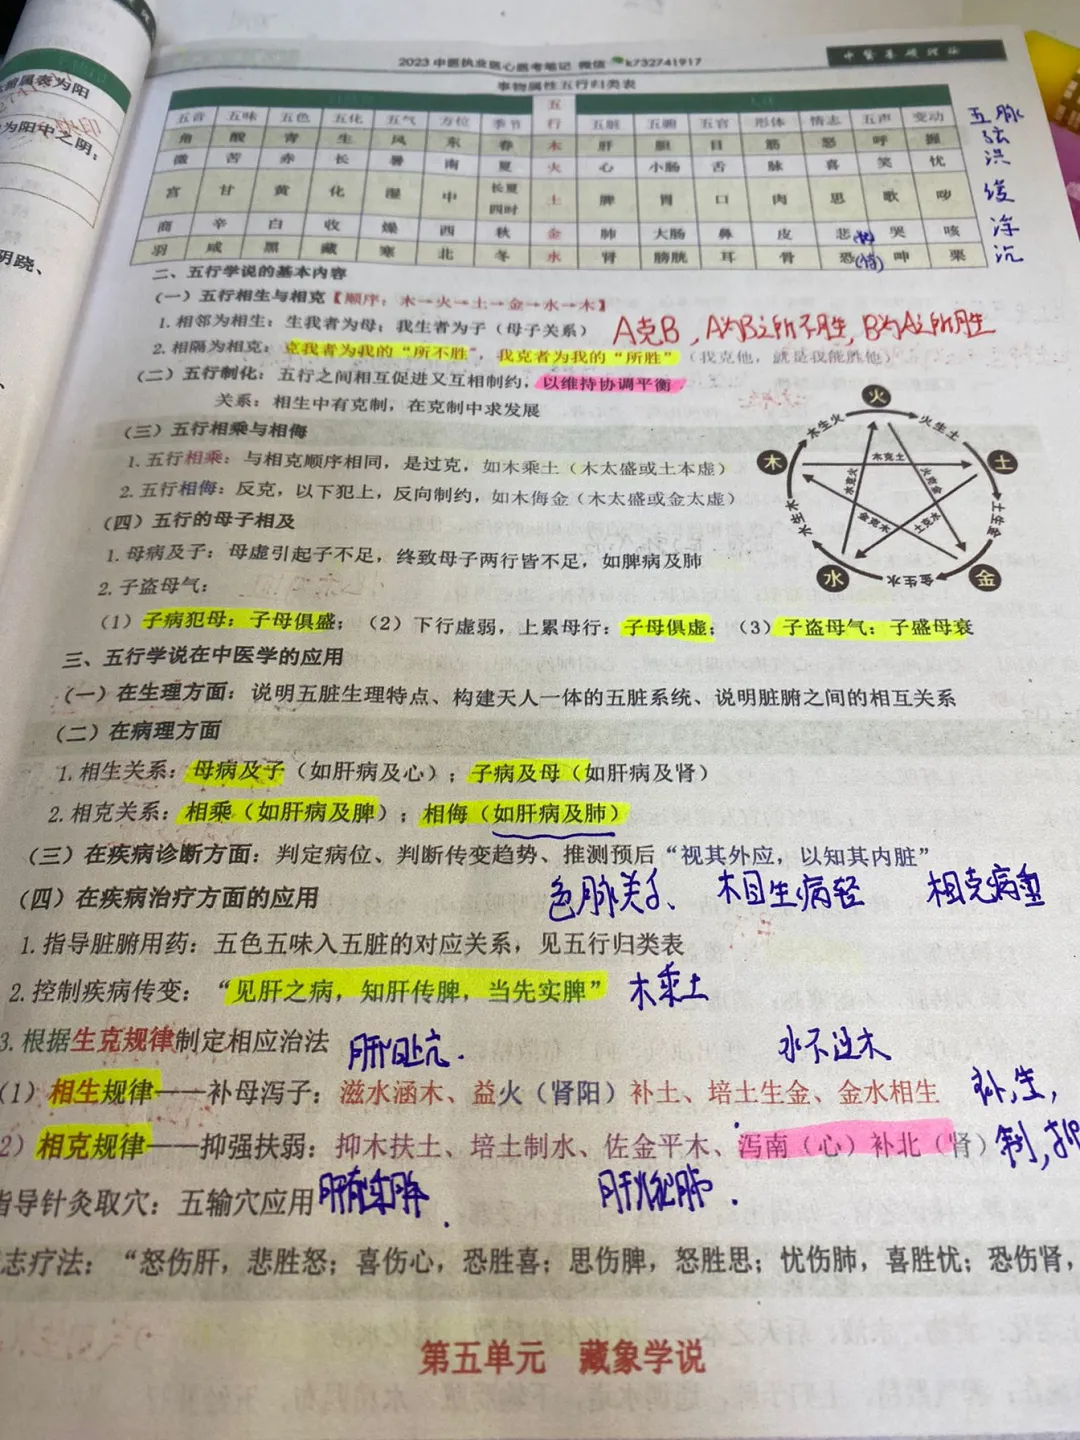 2023中医执业医心医考笔记 微信 k732741917
中医基础理论
事物属性五行归类表
五音 五味 五色 五化 五气 方位 季节 五行 五脏 五腑 五官 形体 情志 五声 变动 五脉
角 酸 青 生 风 东 春 木 肝 胆 目 筋 怒 呼 握 弦
徵 苦 赤 长 暑 南 夏 火 心 小肠 舌 脉 喜 笑 忧 洪
宫 甘 黄 化 湿 中 长夏 四时 土 脾 胃 口 肉 思 歌 哕 缓
商 辛 白 收 燥 西 秋 金 肺 大肠 鼻 皮 悲 哭 咳 浮
羽 咸 黑 藏 寒 北 冬 水 肾 膀胱 耳 骨 恐 呻 栗 沉
二、五行学说的基本内容
（一）五行相生与相克【顺序：木→火→土→金→水→木】
1.相邻为相生：生我者为母；我生者为子（母子关系）
A克B，A为B之所不胜，B为A之所胜
2.相隔为相克：克我者为我的“所不胜”，我克者为我的“所胜”（我克他，就是我能胜他）
（二）五行制化：五行之间相互促进又互相制约，以维持协调平衡
关系：相生中有克制，在克制中求发展
（三）五行相乘与相侮
1.五行相乘：与相克顺序相同，是过克，如木乘土（木太盛或土本虚）
2.五行相侮：反克，以下犯上，反向制约，如木侮金（木太盛或金太虚）
（四）五行的母子相及
1.母病及子：母虚引起子不足，终致母子两行皆不足，如脾病及肺
2.子盗母气：
（1）子病犯母：子母俱盛；（2）下行虚弱，上累母行：子母俱虚；（3）子盗母气：子盛母衰
火
木生火
火生土
木
木克土
土
水克火
火克金
水生木
土生金
金克木
土克水
水
金生水
金
三、五行学说在中医学的应用
（一）在生理方面：说明五脏生理特点、构建天人一体的五脏系统、说明脏腑之间的相互关系
（二）在病理方面
1.相生关系：母病及子（如肝病及心）；子病及母（如肝病及肾）
2.相克关系：相乘（如肝病及脾）；相侮（如肝病及肺）
（三）在疾病诊断方面：判定病位、判断传变趋势、推测预后“视其外应，以知其内脏”
（四）在疾病治疗方面的应用
色脉关系、 相生病轻 相克病重
1.指导脏腑用药：五色五味入五脏的对应关系，见五行归类表
2.控制疾病传变：“见肝之病，知肝传脾，当先实脾” 木乘土
3.根据生克规律制定相应治法 肝阳上亢. 水不涵木
（1）相生规律——补母泻子：滋水涵木、益火（肾阳）补土、培土生金、金水相生 补，生，
2）相克规律——抑强扶弱：抑木扶土、培土制水、佐金平木、泻南（心）补北（肾） 制，抑
指导针灸取穴：五输穴应用 肝乘脾. 肝火犯肺.
志疗法：“怒伤肝，悲胜怒；喜伤心，恐胜喜；思伤脾，怒胜思；忧伤肺，喜胜忧；恐伤肾，
第五单元 藏象学说
属表为阳
为阳中之阴；
阴跷、